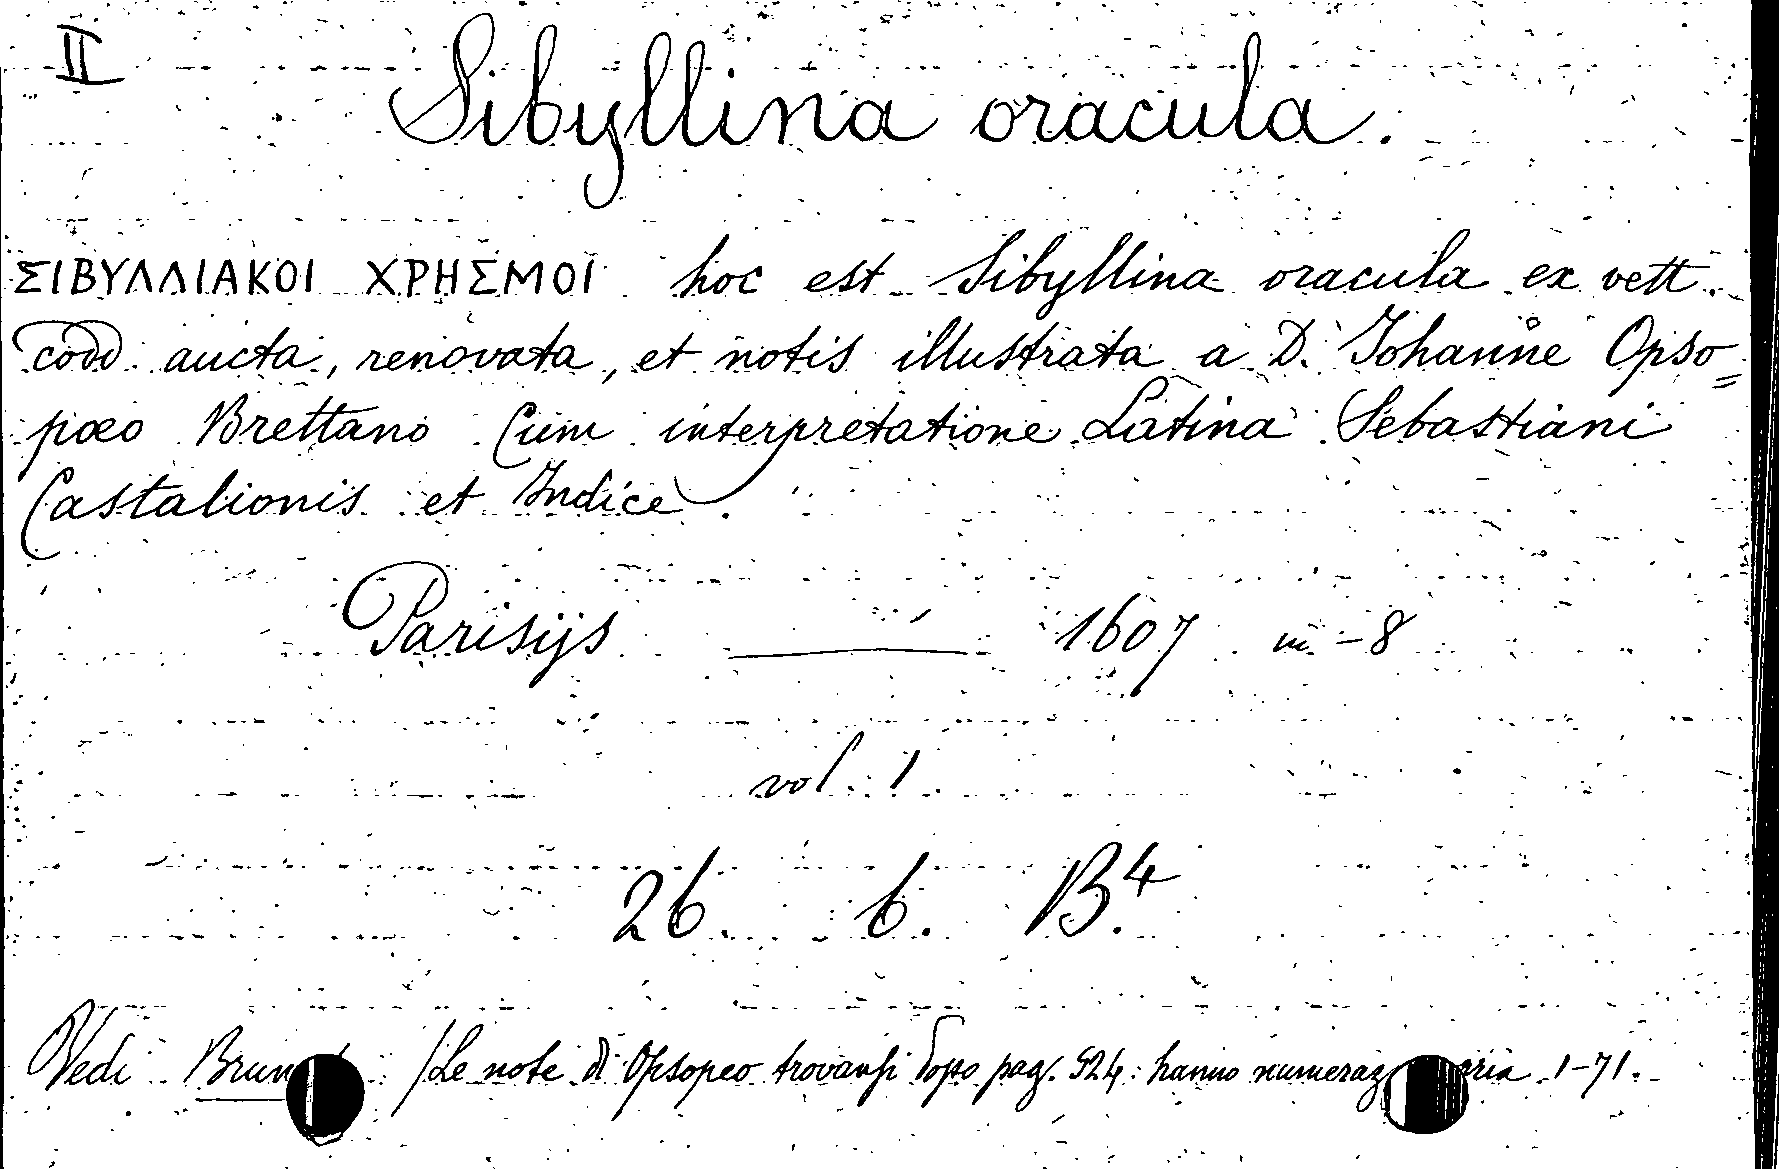 II
Sibyllina oracula.
ΣΙΒΥΛΛΙΑΚΟΙ ΧΡΗΣΜΟΙ hoc est Sibyllina oracula ex vett.
codd. aucta, renovata, et notis illustrata a D. Johanne Opso=
pœo Brettano Cum interpretatione Latina Sebastiani
Castalionis et Indice.
Parisijs — 1607 in-8
vol. 1
26. 6. B.4
Vedi /Le note di Opsopeo trovansi dopo pag. 524: hanno 1-71.